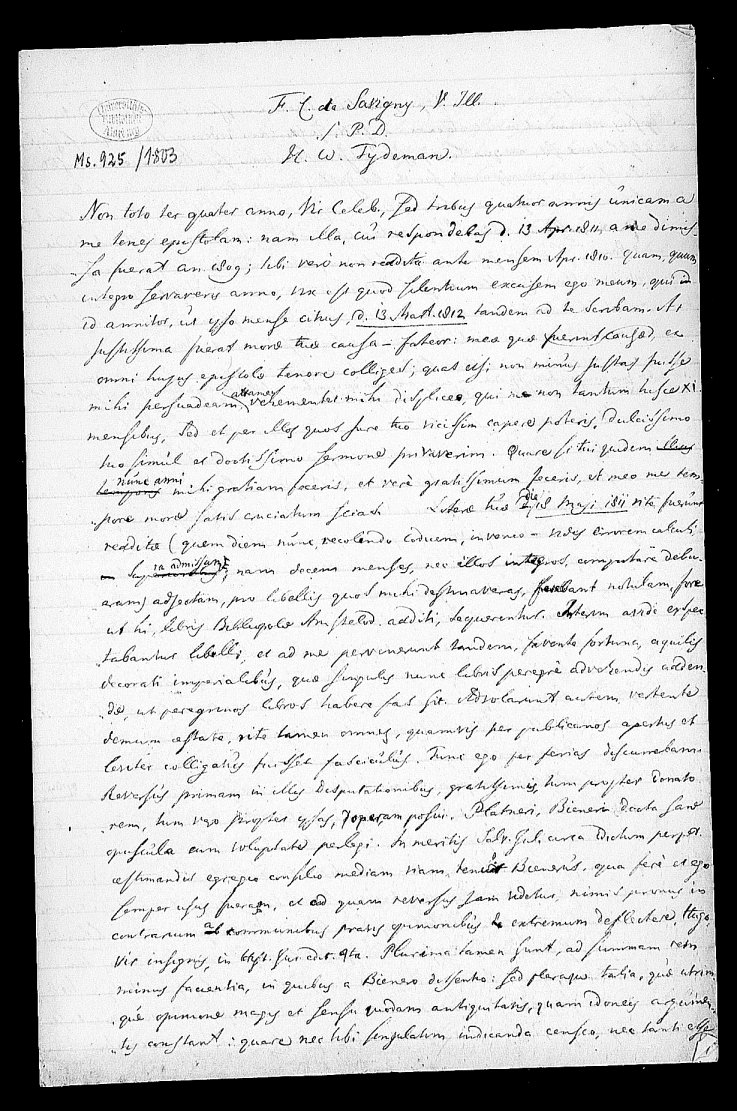 F. C. de Savigny, V. Ill.
S. P. D.
H. W. Tydeman.
Universitäts-
Bibliothek
Marburg
Ms. 925 / 1803
Non toto ter quater anno, Vir Celeb., sed tribus quatuor annis unicam a
me tenes epistolam: nam illa, cui respondebas d. 13 Apr. 1811, a me dimis-
sa fuerat an. 1809; tibi vero non reddita ante mensem Apr. 1810. quam, quum
integro servaveris anno, vix est quod silentium excusem ego meum, qui
id annitor, ut ipso mense citius, d. 13 Mart. 1812 tandem ad te scribam. At
justissima fuerat moræ tuæ causa – fateor: meæ quæ fuerint causæ, ex
omni hujus epistolæ tenore colliges; quas etsi non minus justas fuisse
mihi persuadeam, attamen vehementer mihi displiceo, qui me non tantum hisce XI.
mensibus, sed et per illos quos jure tuo vicissim capere poteris, dulcissimo
tuo simul et doctissimo sermone privaverim. Quare si tu quidem
nunc anni mihi gratiam feceris, et vere gratissimum feceris, et meo me tem-
pore moræ satis cruciatum scias. Literæ tuæ die 18 Maji 1811 rite fuerunt
redditæ (quem diem nunc, recolendo codicem, invenio – vides errorem calculi
supra admissum; nam decem menses, nec illos integros, computare debu-
eram) adjectam, pro libellis quos mihi destinaveras, ferebant notulam, fore
ut hi, libris Bibliopolæ Amstelod. additi, sequerentur. Interim avide exspec-
tabantur libelli, et ad me pervenerunt tandem, favente fortuna, aquilis
decorati imperialibus, quæ singulis nunc libris peregre advehendis adden-
dæ, ut peregrinos libros habere fas sit. Advolarunt autem, vertente
demum æstate, rite tamen omnes, quamvis per publicanos apertus et
leviter colligatus fuisset fasciculus. Tunc ego per ferias discurrebam.
Reversus primam in illis Disputationibus, gratissimis, tum propter donato-
rem, tum vero propter ipsas, operam posui. Platneri, Bieneri docta sane
opuscula cum voluptate perlegi. In meritis Salv. Jul. circa Edictum perpet.
æstimandis egregio consilio mediam viam tenuit Bienerus, qua fere et ego
semper usus fueram, et ad quam reversus jam videtur, nimis pronus in
contrarium ab communibus pravis opinionibus extremum deflectere, Hugo,
Vir insignis, in hist. jur. edit. 4ta. Plurima tamen sunt, ad summam rem
minus facientia, in quibus a Bienero dissentio: sed pleraque talia, quæ utrim-
que opinione magis et sensu quodam antiquitatis, quam idoneis argumen-
tis constant: quare nec tibi singulatim indicanda censeo, nec tanti esse